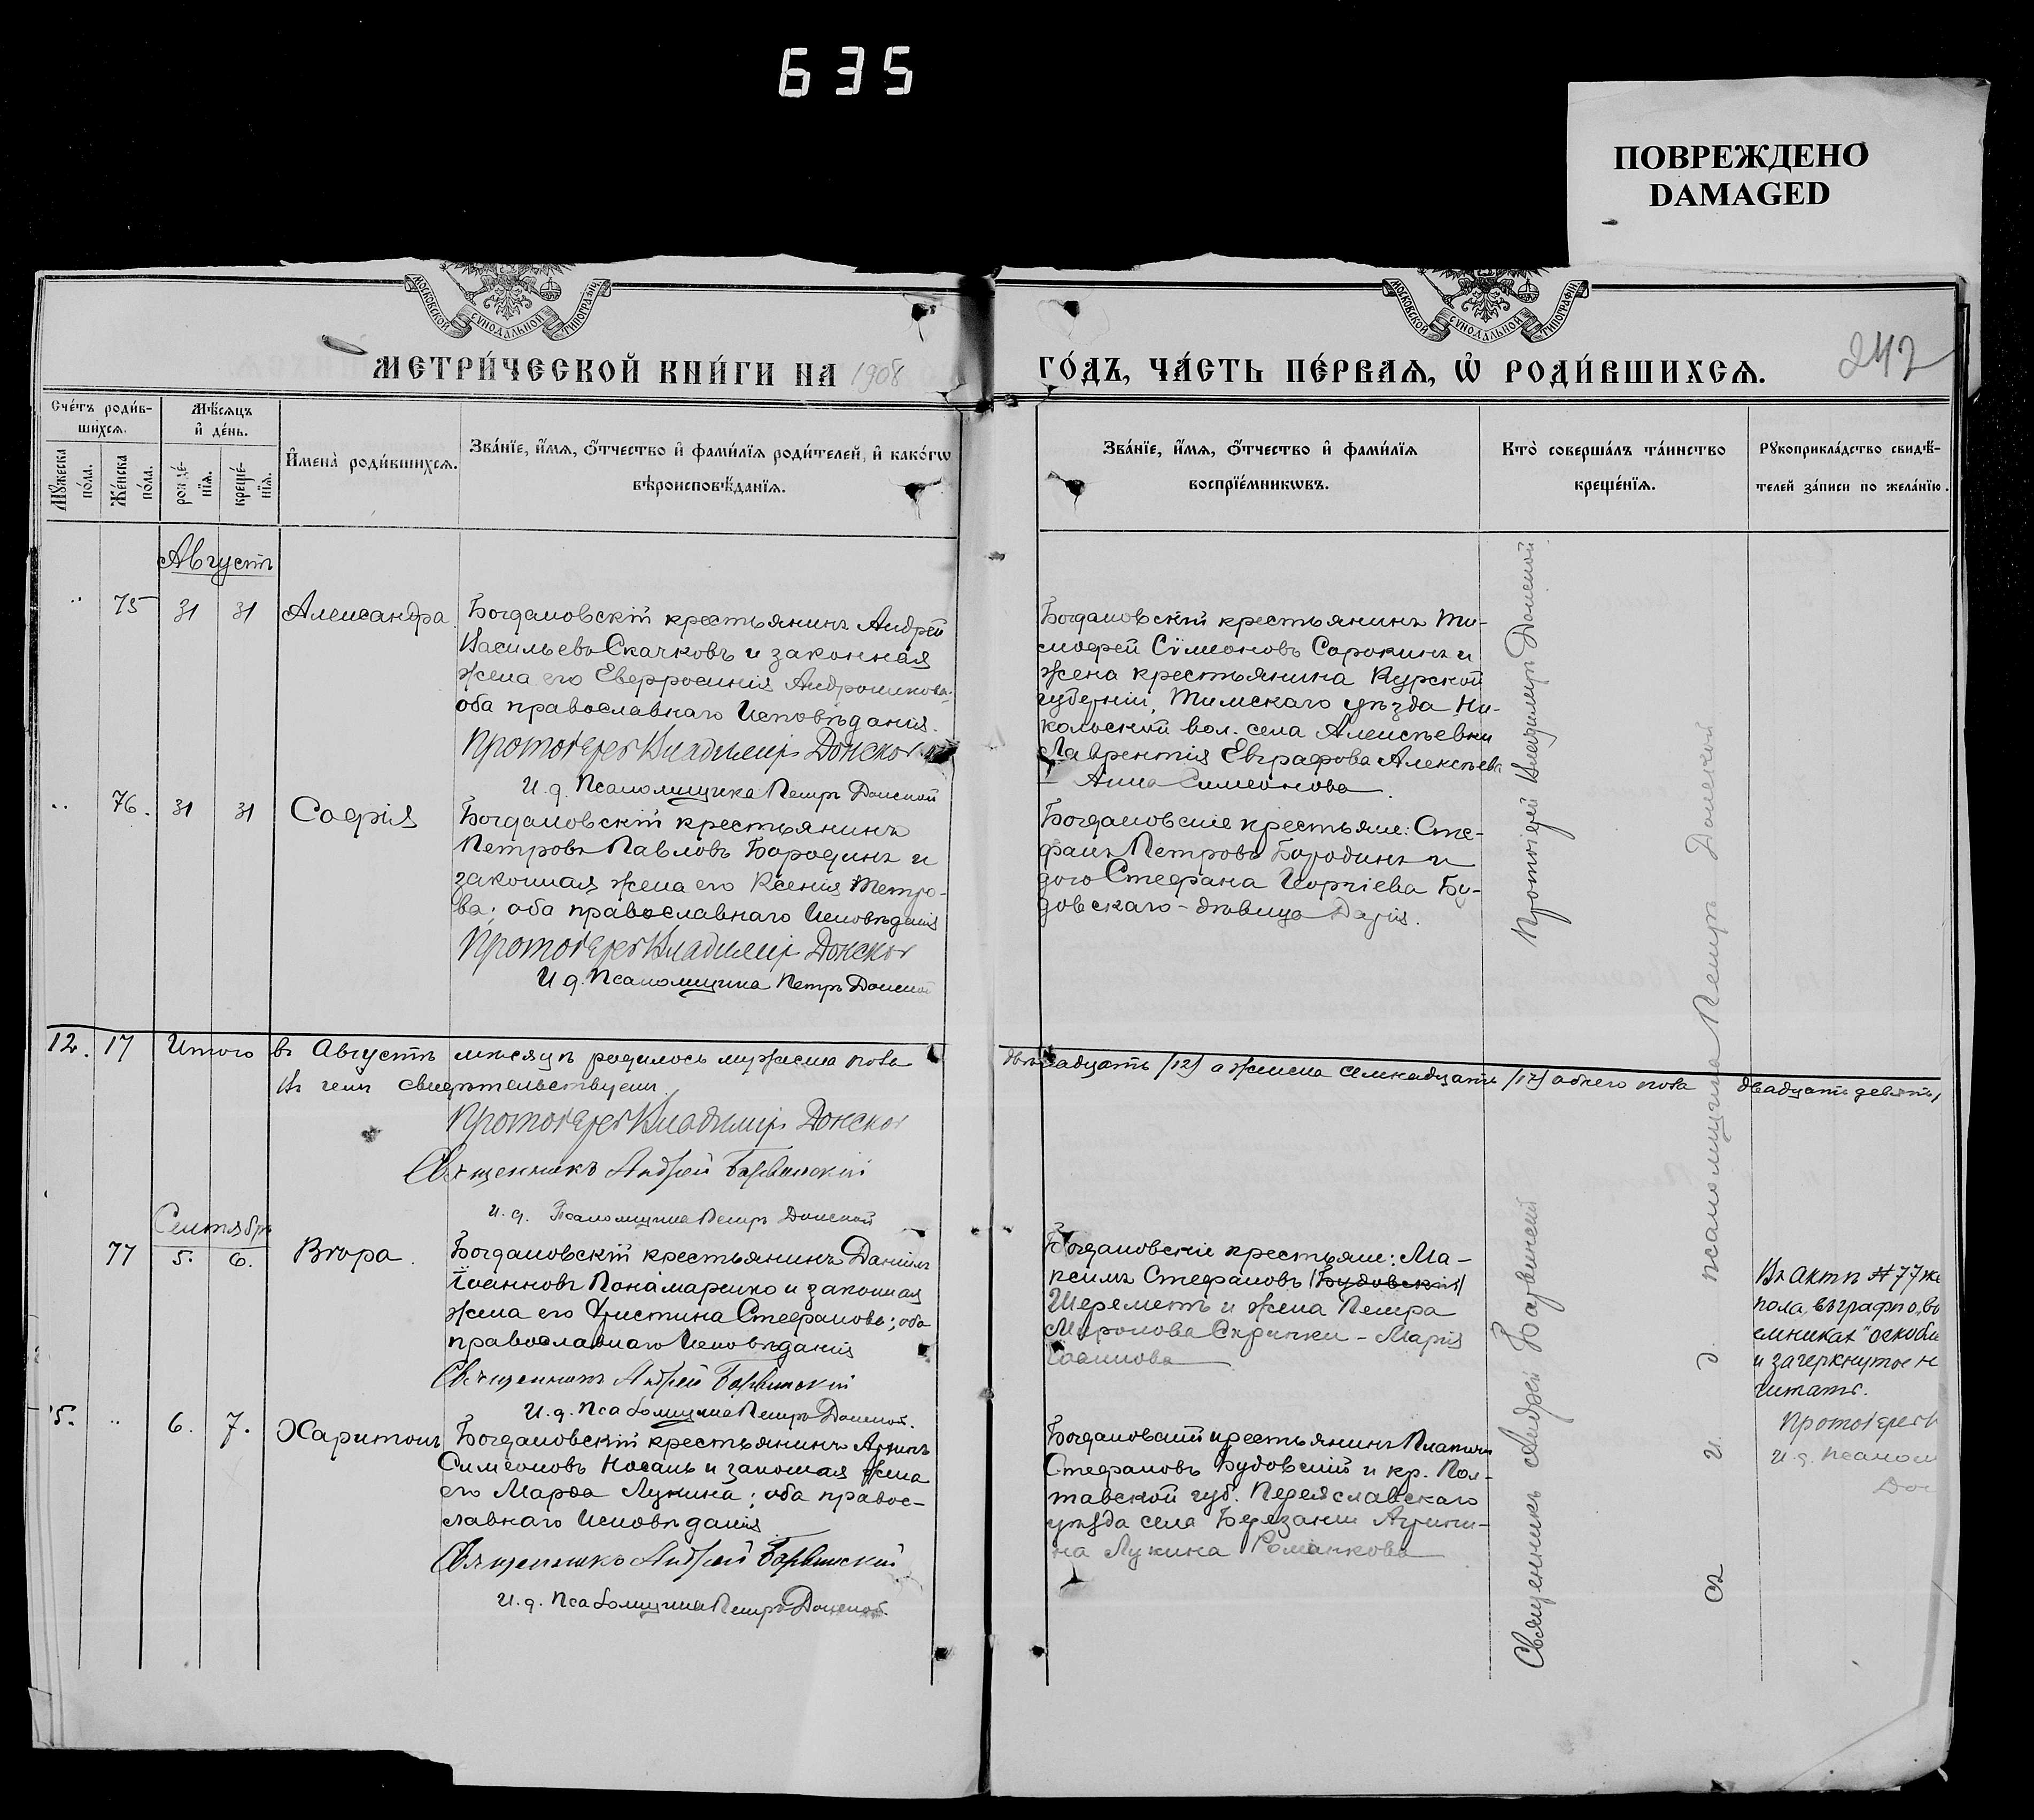 635
ПОВРЕЖДЕНО
DAMAGED
МОСКОВСКОЙ СУНОДАЛЬНОЙ ТИПОГРАФІИ
МОСКОВСКОЙ СУНОДАЛЬНОЙ ТИПОГРАФІИ
МЕТРИ́ЧЕСКОЙ КНИ́ГИ НА 1908
ГО́ДЪ, ЧА́СТЬ ПЕ́РВАѦ, Ѡ҆ РОДИ́ВШИХСѦ.
242
Сче́тъ роди́в-
шихсѧ.
Мꙋ́жеска по́ла.
Же́нска по́ла.
Мѣ́сѧцъ
и҆ де́нь.
рожде́-
нїѧ.
креще́-
нїѧ.
И҆мена̀ роди́вшихсѧ.
Зва́нїе, и҆́мѧ, ѻ҆́тчество и҆ фами́лїѧ роди́телей, и҆ како́гѡ
вѣроисповѣ́данїѧ.
Зва́нїе, и҆́мѧ, ѻ҆́тчество и҆ фами́лїѧ
воспрїе́мникѡвъ.
Кто̀ соверша́лъ та́инство
креще́нїѧ.
Рꙋкоприкла́дство свидѣ́-
телей за́писи по жела́нїю.
Августъ
" 75 31 31 Александра
Богдановскій крестьянинъ Андрей
Васильевъ Скачковъ и законная
жена его Еверросинія Андроникова
оба православнаго Исповѣданія.
Протоіерей Владиміръ Донской
И. д. Псаломщика Петръ Донской
Богдановскій крестьянинъ Ти-
мофей Сімеоновъ Сорокинъ и
жена крестьянина Курской
губерніи, Тимскаго уѣзда Ни-
кольской вол. села Алексѣевки
Лаврентія Евграфова Алексѣева
– Анна Симеонова.
" 76. 31 31 Софія
Богдановскій крестьянинъ
Петровъ Павловъ Бородинъ и
законная жена его Ксенія Петро-
ва; оба православнаго Исповѣданія
Протоіерей Владиміръ Донской
И д. Псаломщика Петръ Донской
Богдановскіе крестьяне: Сте-
фанъ Петровъ Бородинъ и
дочь Стефана Георгіева Бу-
довскаго - дѣвица Дарія.
Протоіерей Владиміръ Донской
12. 17 Итого въ Августѣ мѣсяцѣ родилось мужеска пола
двѣнадцать /12/ а женска семнадцать /17/ обоего пола двадцать девять
Въ чемъ свидѣтельствуемъ
Протоіерей Владиміръ Донской
Священникъ Андрей Барвинскій
И. д. Псаломщика Петръ Донской
Сентябрь
77 5. 6. Вѣра.
Богдановскій крестьянинъ Даніилъ
Іоанновъ Понамаренко и законная
жена его Христина Стефанова; оба
православнаго Исповѣданія
Священникъ Андрей Барвинскій
И. д. Псаломщика Петръ Донской.
Богдановскіе крестьяне: Ма-
ксимъ Стефановъ (Будовскій)
Шереметъ и жена Петра
Миронова Скрички - Марія
Іоаннова
Въ Актѣ № 77 же
пола, въ графѣ о во
емникахъ" оскобле
и зачеркнутое не
читать.
Протоіерей
И. д. Псалом
Дон
15. " 6. 7. Харитонъ
Богдановскій крестьянинъ
Симеоновъ Носань и законная жена
его Марѳа Лукина; оба правос-
лавнаго Исповѣданія
Священникъ Андрей Барвинскій
И. д. Псаломщика Петръ Донской.
Богдановскій крестьянинъ
Стефановъ Будовскій и кр. Пол-
тавской губ. Переяславскаго
уѣзда села Березани
на Лукина Романкова
Священникъ Андрей Барвинскій
съ и. д. псаломщика Петръ Донской